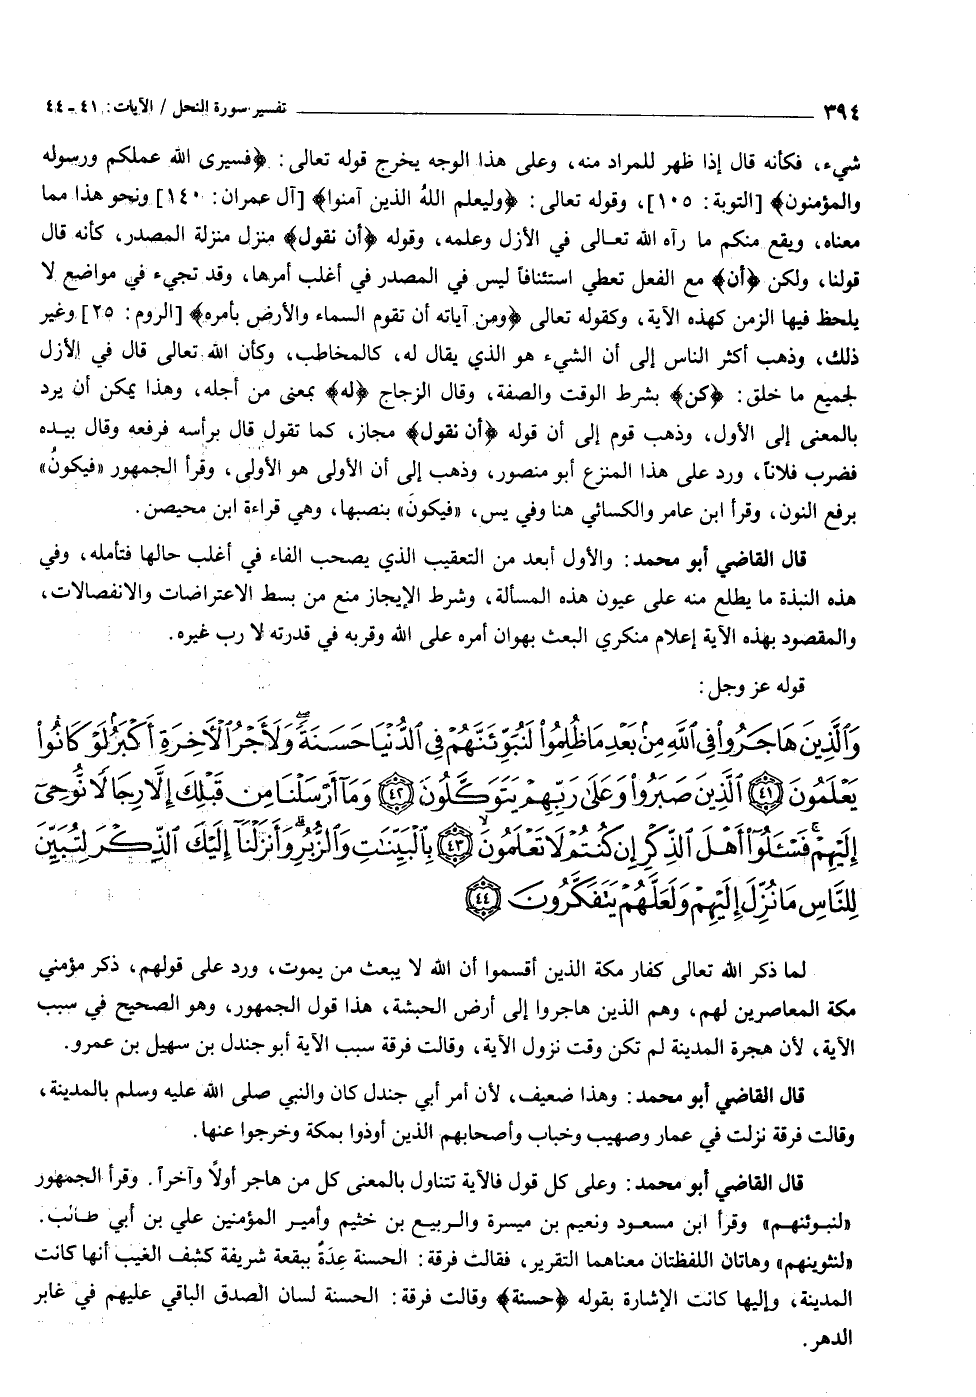 ٣٩٤ تفسير سورة النحل / الآيات: ٤١ - ٤٤
شيء، فكأنه قال إذا ظهر للمراد منه، وعلى هذا الوجه يخرج قوله تعالى: ﴿فسيرى الله عملكم ورسوله
والمؤمنون﴾ [التوبة: ١٠٥]، وقوله تعالى: ﴿وليعلم اللهُ الذين آمنوا﴾ [آل عمران: ١٤٠] ونحو هذا مما
معناه، ويقع منكم ما رآه الله تعالى في الأزل وعلمه، وقوله ﴿أن نقول﴾ منزل منزلة المصدر، كأنه قال
قولنا، ولكن ﴿أن﴾ مع الفعل تعطي استئنافاً ليس في المصدر في أغلب أمرها، وقد تجيء في مواضع لا
يلحظ فيها الزمن كهذه الآية، وكقوله تعالى ﴿ومن آياته أن تقوم السماء والأرض بأمره﴾ [الروم: ٢٥] وغير
ذلك، وذهب أكثر الناس إلى أن الشيء هو الذي يقال له، كالمخاطب، وكأن الله تعالى قال في الأزل
لجميع ما خلق: ﴿كن﴾ بشرط الوقت والصفة، وقال الزجاج ﴿له﴾ بمعنى من أجله، وهذا يمكن أن يرد
بالمعنى إلى الأول، وذهب قوم إلى أن قوله ﴿أن نقول﴾ مجاز، كما تقول قال برأسه فرفعه وقال بيده
فضرب فلاناً، ورد على هذا المنزع أبو منصور، وذهب إلى أن الأولى هو الأولى، وقرأ الجمهور «فيكونُ»
برفع النون، وقرأ ابن عامر والكسائي هنا وفي يس، «فيكونَ» بنصبها، وهي قراءة ابن محيصن.
قال القاضي أبو محمد: والأول أبعد من التعقيب الذي يصحب الفاء في أغلب حالها فتأمله، وفي
هذه النبذة ما يطلع منه على عيون هذه المسألة، وشرط الإيجاز منع من بسط الاعتراضات والانفصالات،
والمقصود بهذه الآية إعلام منكري البعث بهوان أمره على الله وقربه في قدرته لا رب غيره.
قوله عز وجل:
وَالَّذِينَ هَاجَرُواْ فِي اللَّهِ مِنْ بَعْدِ مَا ظُلِمُواْ لَنُبَوِّئَنَّهُمْ فِي الدُّنْيَا حَسَنَةً وَلَأَجْرُ الْآخِرَةِ أَكْبَرُ لَوْ كَانُواْ
يَعْلَمُونَ ﴿٤١﴾ الَّذِينَ صَبَرُواْ وَعَلَى رَبِّهِمْ يَتَوَكَّلُونَ ﴿٤٢﴾ وَمَا أَرْسَلْنَا مِن قَبْلِكَ إِلَّا رِجَالًا نُّوحِي
إِلَيْهِمْ فَسْئَلُواْ أَهْلَ الذِّكْرِ إِن كُنتُمْ لَا تَعْلَمُونَ ﴿٤٣﴾ بِالْبَيِّنَٰتِ وَالزُّبُرِ وَأَنزَلْنَا إِلَيْكَ الذِّكْرَ لِتُبَيِّنَ
لِلنَّاسِ مَا نُزِّلَ إِلَيْهِمْ وَلَعَلَّهُمْ يَتَفَكَّرُونَ ﴿٤٤﴾
لما ذكر الله تعالى كفار مكة الذين أقسموا أن الله لا يبعث من يموت، ورد على قولهم، ذكر مؤمني
مكة المعاصرين لهم، وهم الذين هاجروا إلى أرض الحبشة، هذا قول الجمهور، وهو الصحيح في سبب
الآية، لأن هجرة المدينة لم تكن وقت نزول الآية، وقالت فرقة سبب الآية أبو جندل بن سهيل بن عمرو.
قال القاضي أبو محمد: وهذا ضعيف، لأن أمر أبي جندل كان والنبي صلى الله عليه وسلم بالمدينة،
وقالت فرقة نزلت في عمار وصهيب وخباب وأصحابهم الذين أوذوا بمكة وخرجوا عنها.
قال القاضي أبو محمد: وعلى كل قول فالآية تتناول بالمعنى كل من هاجر أولاً وآخراً. وقرأ الجمهور
«لنبوئنهم» وقرأ ابن مسعود ونعيم بن ميسرة والربيع بن خثيم وأمير المؤمنين علي بن أبي طالب.
«لنثوينهم» وهاتان اللفظتان معناهما التقرير، فقالت فرقة: الحسنة عِدَةٌ ببقعة شريفة كشف الغيب أنها كانت
المدينة، وإليها كانت الإشارة بقوله ﴿حسنة﴾ وقالت فرقة: الحسنة لسان الصدق الباقي عليهم في غابر
الدهر.